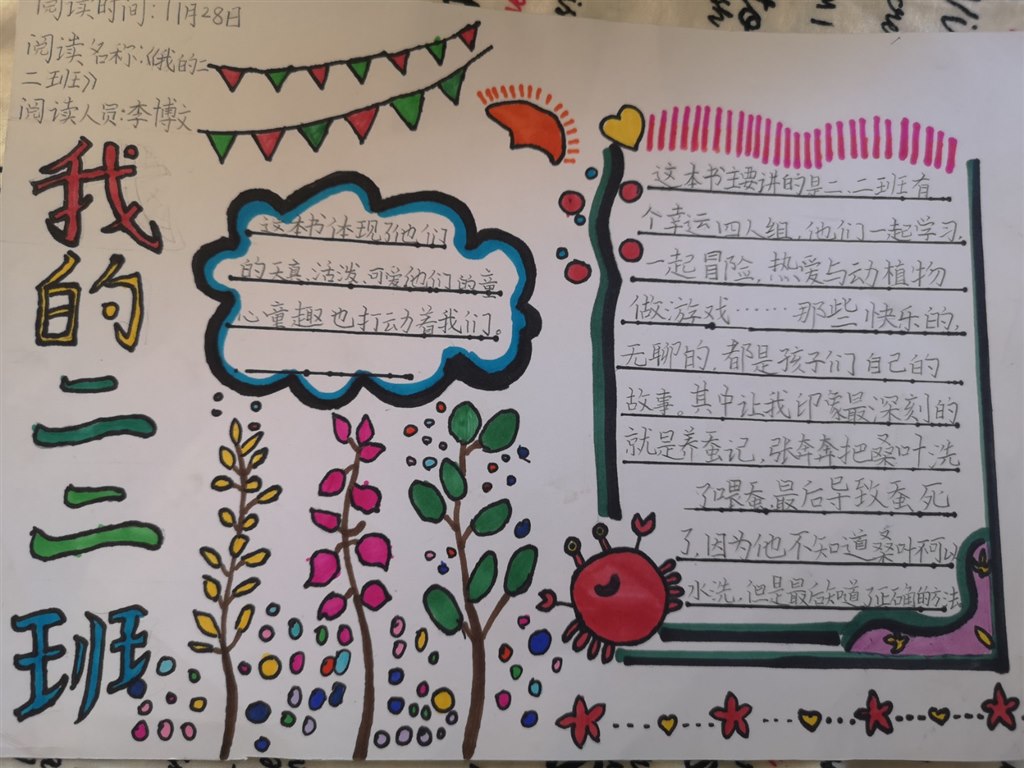 阅读时间：11月28日
阅读名称：《我的二
二班》
阅读人员：李博文
我的二二班
这本书体现了他们
的天真、活泼、可爱他们的童
心童趣也打动着我们。
这本书主要讲的是二、二班有
个幸运四人组，他们一起学习，
一起冒险，热爱与动植物
做游戏……那些快乐的，
无聊的，都是孩子们自己的
故事。其中让我印象最深刻的
就是养蚕记，张奔奔把桑叶洗
了喂蚕，最后导致蚕死
了，因为他不知道桑叶不可以
水洗，但是最后知道了正确的方法